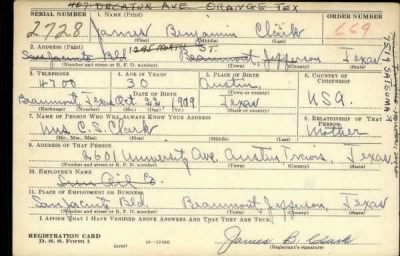 407 DECATUR AVE ORANGE TEX
SERIAL NUMBER 1. NAME (Print) ORDER NUMBER
2728 James Benjamin Clark 669
(First) (Middle) (Last)
2. ADDRESS (Print)
San Jacinto Bld ST. Beaumont, Jefferson, Texas
(Number and street or R. F. D. number) (Town) (County) (State)
3. TELEPHONE 4. AGE IN YEARS 5. PLACE OF BIRTH 6. COUNTRY OF CITIZENSHIP
4700 30 Austin
DATE OF BIRTH (Town or county)
Beaumont, Texas Oct. 22, 1909 Texas USA.
(Exchange) (Number) (Mo.) (Day) (Yr.) (State or country)
7. NAME OF PERSON WHO WILL ALWAYS KNOW YOUR ADDRESS 8. RELATIONSHIP OF THAT PERSON
Mrs. C. S. Clark Mother
(Mr., Mrs., Miss) (First) (Middle) (Last)
9. ADDRESS OF THAT PERSON
2601 University Ave. Austin Travis, Texas
(Number and street or R. F. D. number) (Town) (County) (State)
10. EMPLOYER'S NAME
Sun Oil Co.
11. PLACE OF EMPLOYMENT OR BUSINESS
San Jacinto Bld. Beaumont Jefferson, Texas
(Number and street or R. F. D. number) (Town) (County) (State)
I AFFIRM THAT I HAVE VERIFIED ABOVE ANSWERS AND THAT THEY ARE TRUE.
REGISTRATION CARD
D. S. S. Form 1 (over) James B. Clark
(Registrant's signature)
7519 SATSUMA